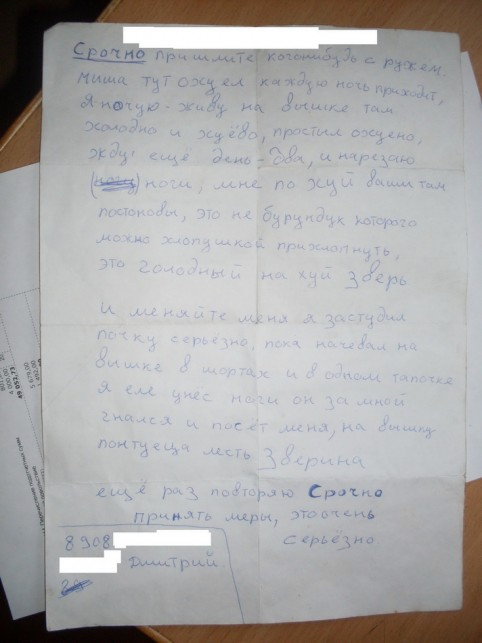 Срочно пришлите когонибудь с ружем,
миша тут ожуел каждую ночь приходет,
я ночую-живу на вышке там
холодно и жуёво, простыл ожуено,
жду ещё день-два, и нарезаю
ноги, мне по жуй ваши там
постоновы, это не бурундук которого
можно хлопушкой прихлопнуть,
это голодный на хуй Зверь
и меняйте меня я застудил
почку серьезно, пока начевал на
вышке в шортах и в одном тапочке
я еле унес ноги он за мной
гнался и посёт меня, на вышку
понтуеца лесть Зверина
ещё раз повторяю Срочно
принять меры, это очень
Серьёзно
8 908
Дмитрий